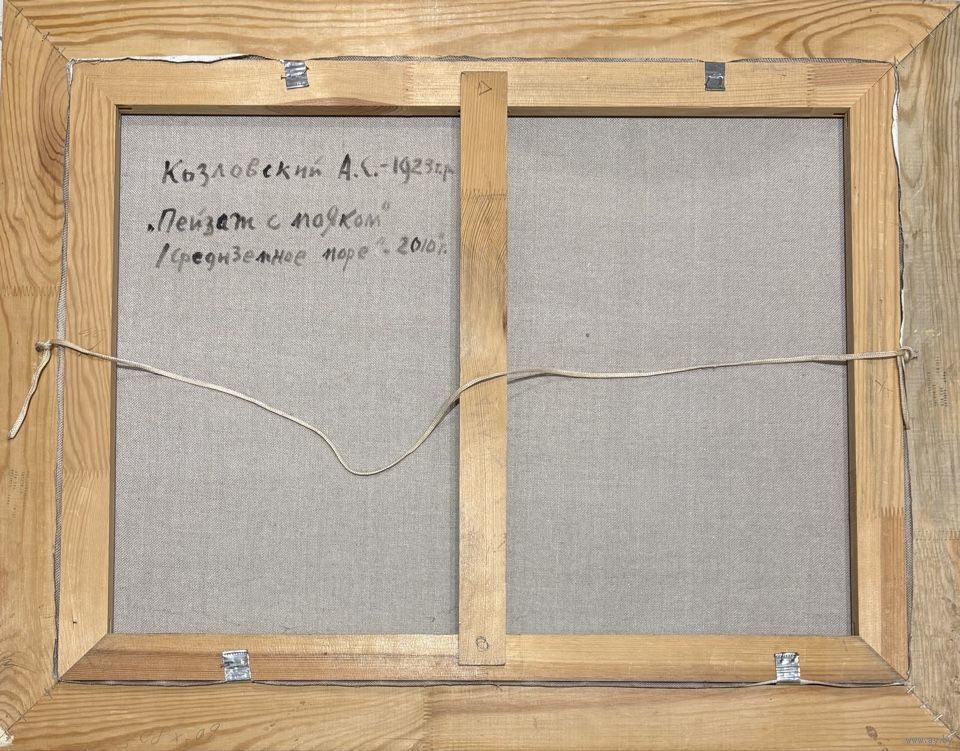 Козловский А.С.-1923г.р.
„Пейзаж с маяком"
/Средиземное море". 2010г.
www.ay.by